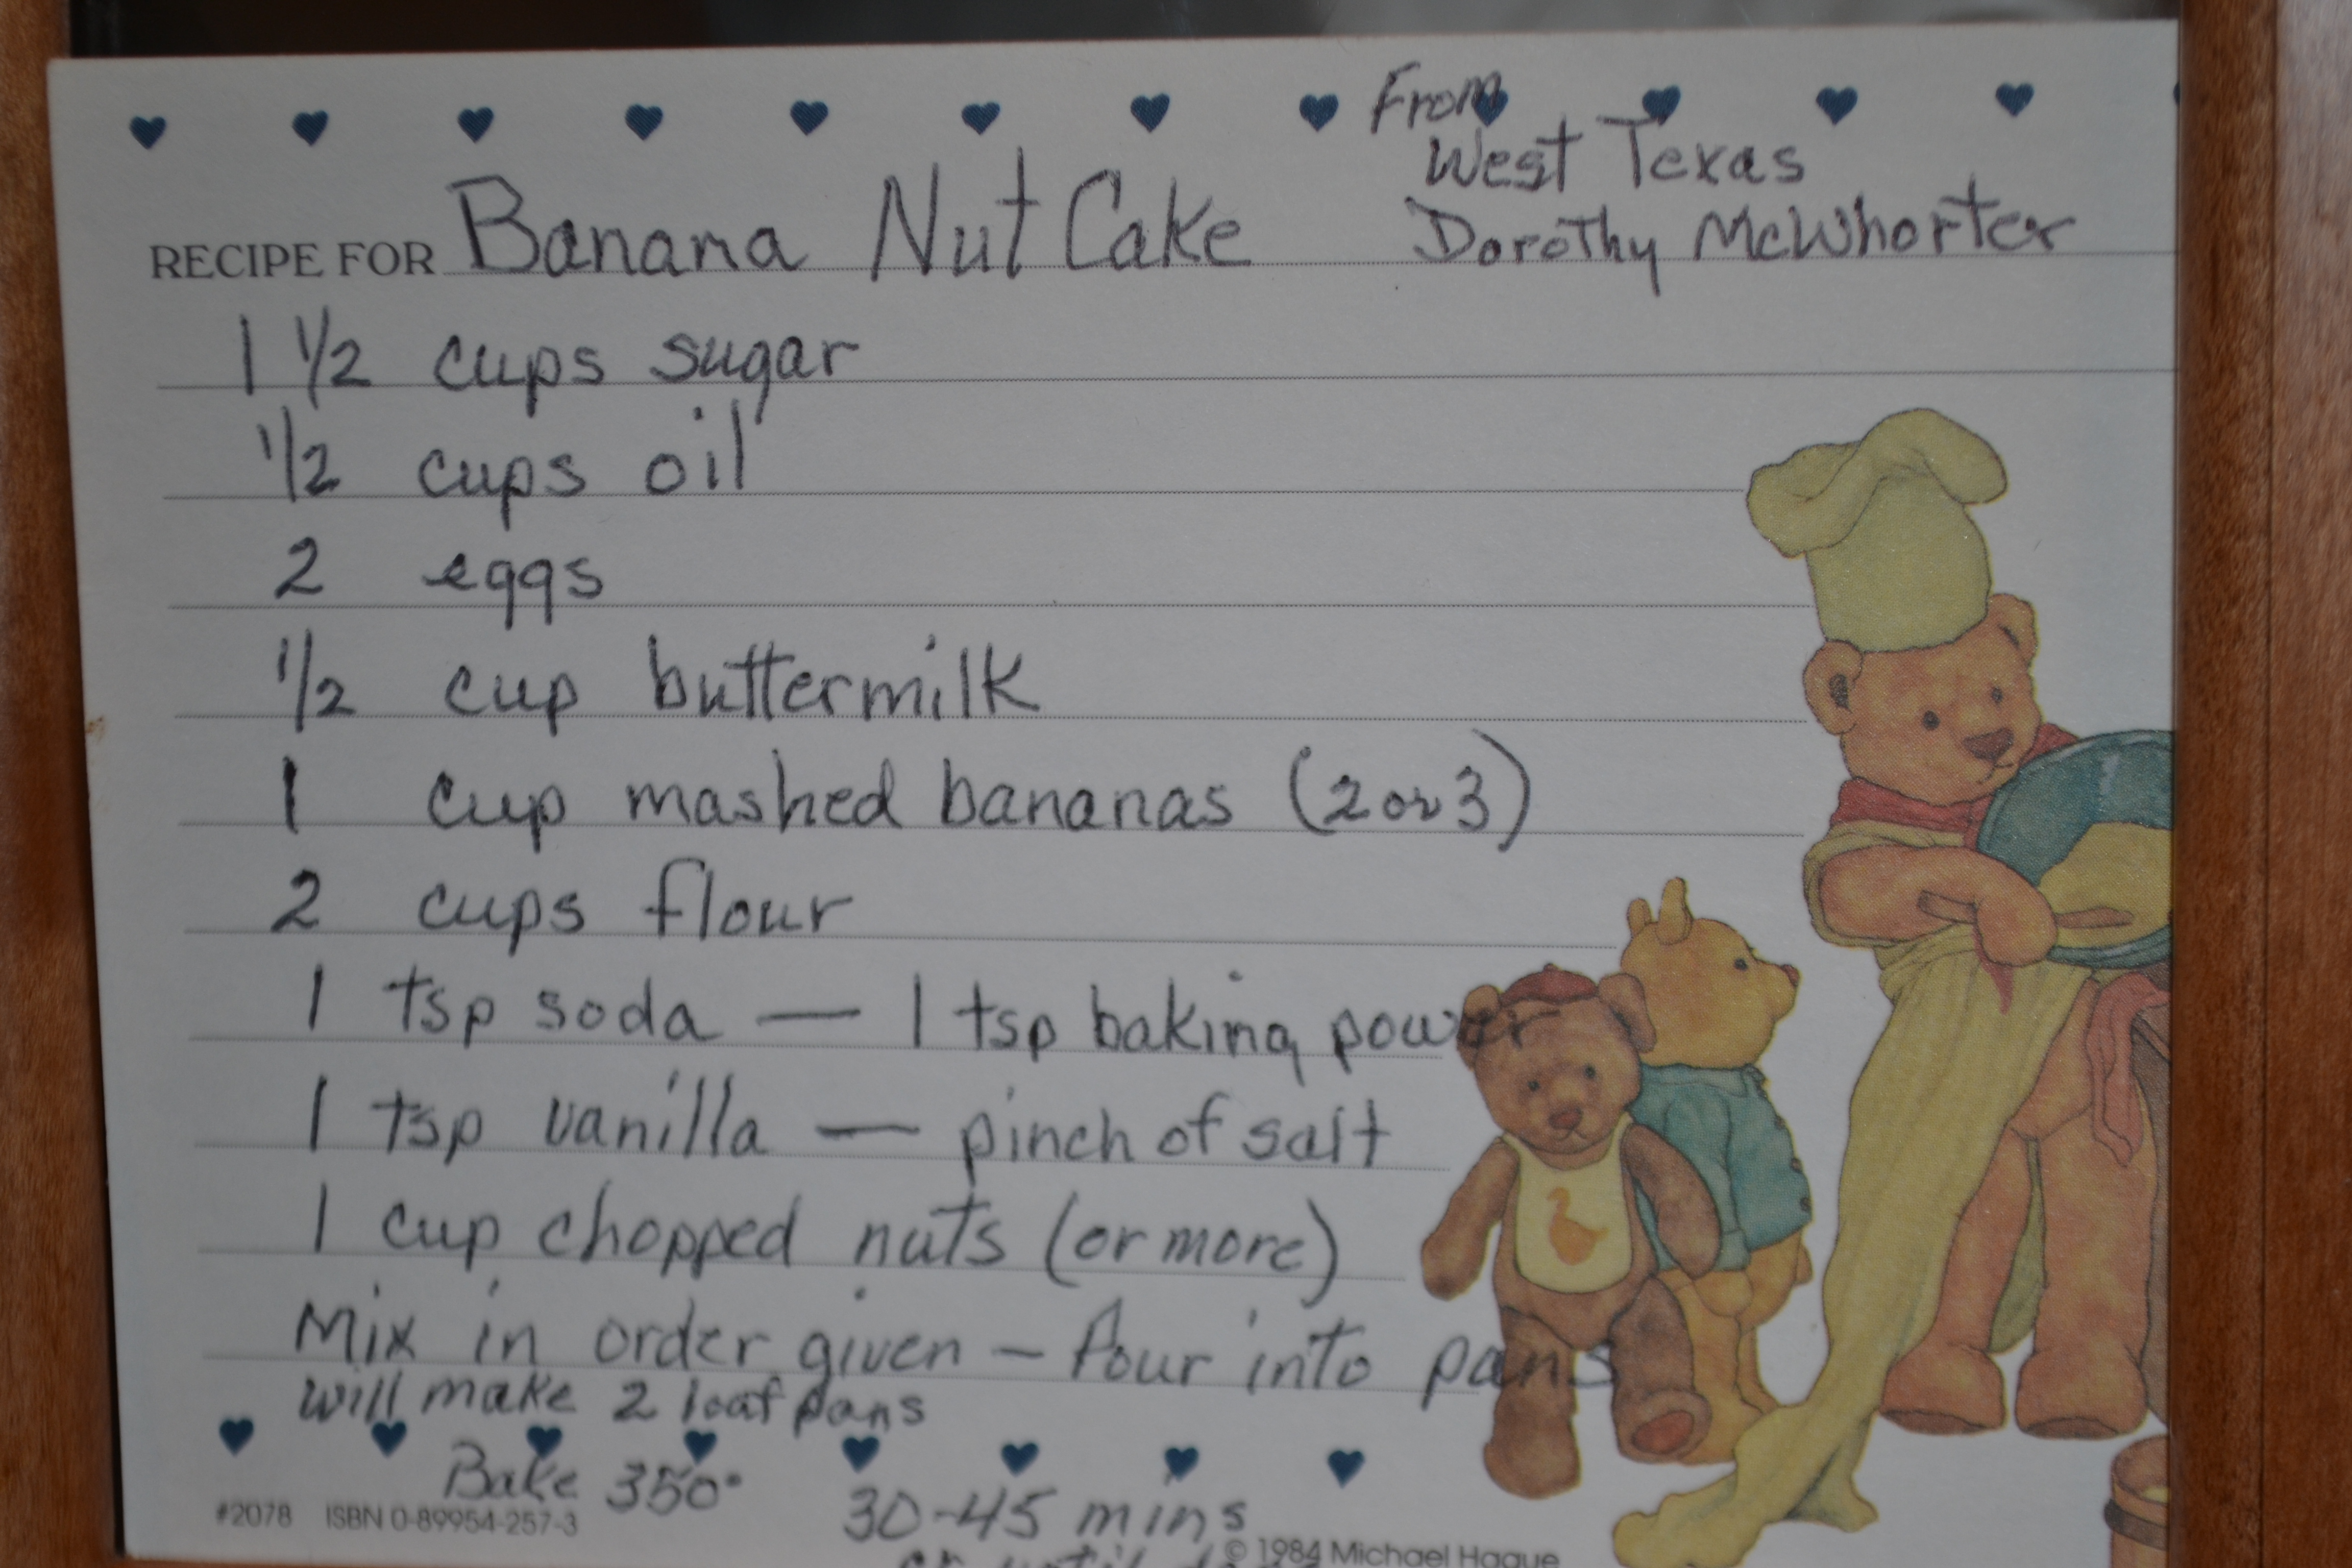 From
West Texas
Dorothy McWhorter
RECIPE FOR Banana Nut Cake
1 1/2 cups sugar
1/2 cups oil
2 eggs
1/2 cup buttermilk
1 cup mashed bananas (2 or 3)
2 cups flour
1 tsp soda — 1 tsp baking power
1 tsp vanilla — pinch of salt
1 cup chopped nuts (or more)
Mix in order given – Pour into pans
will make 2 loaf pans
Bake 350° 30-45 mins
or until
#2078 ISBN 0-89954-257-3
© 1984 Michael Hague